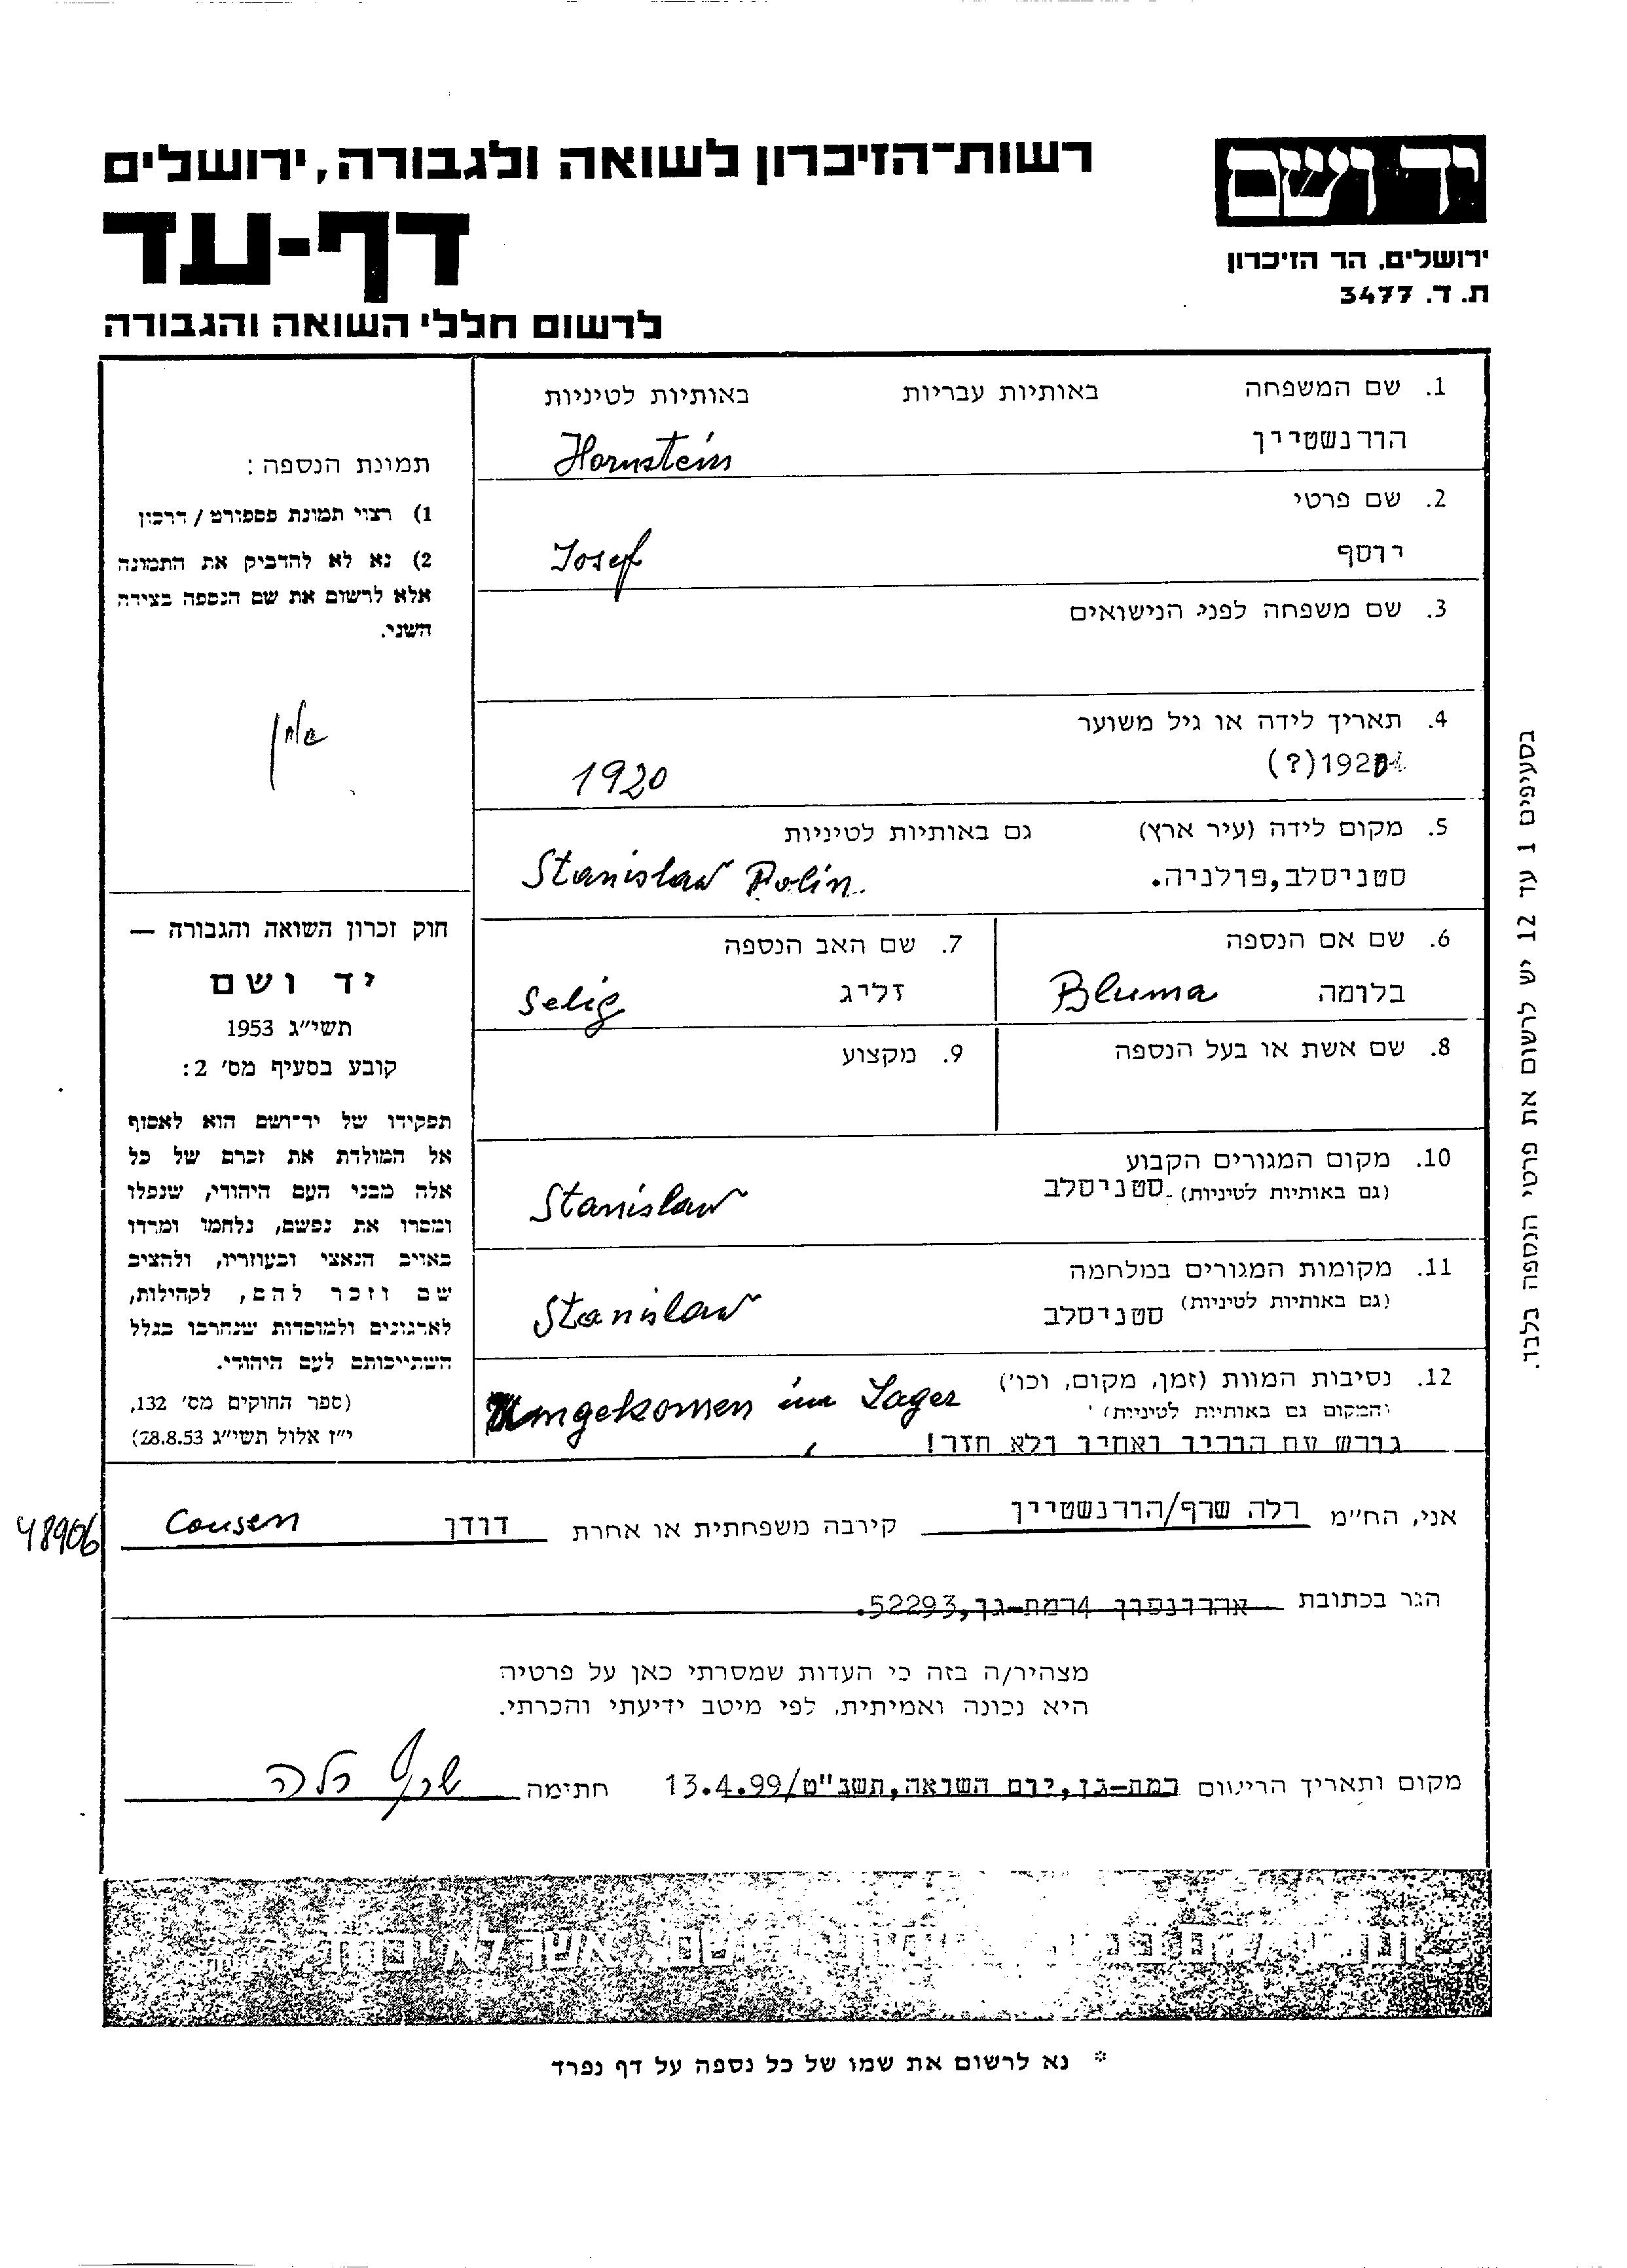 רשות־הזיכרון לשואה ולגבורה, ירושלים
דף-עד
לרשום חללי השואה והגבורה
יד ושם
ירושלים, הר הזיכרון
ת. ד. 3477
1. שם המשפחה באותיות עבריות באותיות לטיניות
הורנשטיין Hornstein
2. שם פרטי
יוסף Josef
3. שם משפחה לפני הנישואים
4. תאריך לידה או גיל משוער
192 (?) 1920
5. מקום לידה (עיר ארץ) גם באותיות לטיניות
סטניסלב, פולניה. Stanislaw Polin.
6. שם אם הנספה
בלומה Bluma
7. שם האב הנספה
זליג Selig
8. שם אשת או בעל הנספה
9. מקצוע
10. מקום המגורים הקבוע
(גם באותיות לטיניות) סטניסלב Stanislaw
11. מקומות המגורים במלחמה
(גם באותיות לטיניות) סטניסלב Stanislaw
12. נסיבות המוות (זמן, מקום, וכו') Umgekomen im Lager
(המקום גם באותיות לטיניות)
גורש עם הוריו ואחיו ולא חזר!
תמונת הנספה:
1) רצוי תמונת פספורט / דרכון
2) נא לא להדביק את התמונה
אלא לרשום את שם הנספה בצידה
השני.
חוק זכרון השואה והגבורה —
יד ושם
תשי״ג 1953
קובע בסעיף מס׳ 2:
תפקידו של יד־ושם הוא לאסוף
אל המולדת את זכרם של כל
אלה מבני העם היהודי, שנפלו
ומסרו את נפשם, נלחמו ומרדו
באויב הנאצי ובעוזריו, ולהציב
שם וזכר להם, לקהילות,
לארגונים ולמוסדות שנחרבו בגלל
השתייכותם לעם היהודי.
(ספר החוקים מס׳ 132,
י״ז אלול תשי״ג 28.8.53)
בסעיפים 1 עד 12 יש לרשום את פרטי הנספה בלבד.
אני, הח״מ רלה שרף/הורנשטיין קירבה משפחתית או אחרת דודן Cousen
48906
הגר בכתובת אהרונסון 4 רמת-גן, 52293.
מצהיר/ה בזה כי העדות שמסרתי כאן על פרטיה
היא נכונה ואמיתית, לפי מיטב ידיעתי והכרתי.
מקום ותאריך הרישום רמת-גן, יום השואה, תשנ"ט/13.4.99 חתימה שרף רלה
אשר לא יכרת
* נא לרשום את שמו של כל נספה על דף נפרד